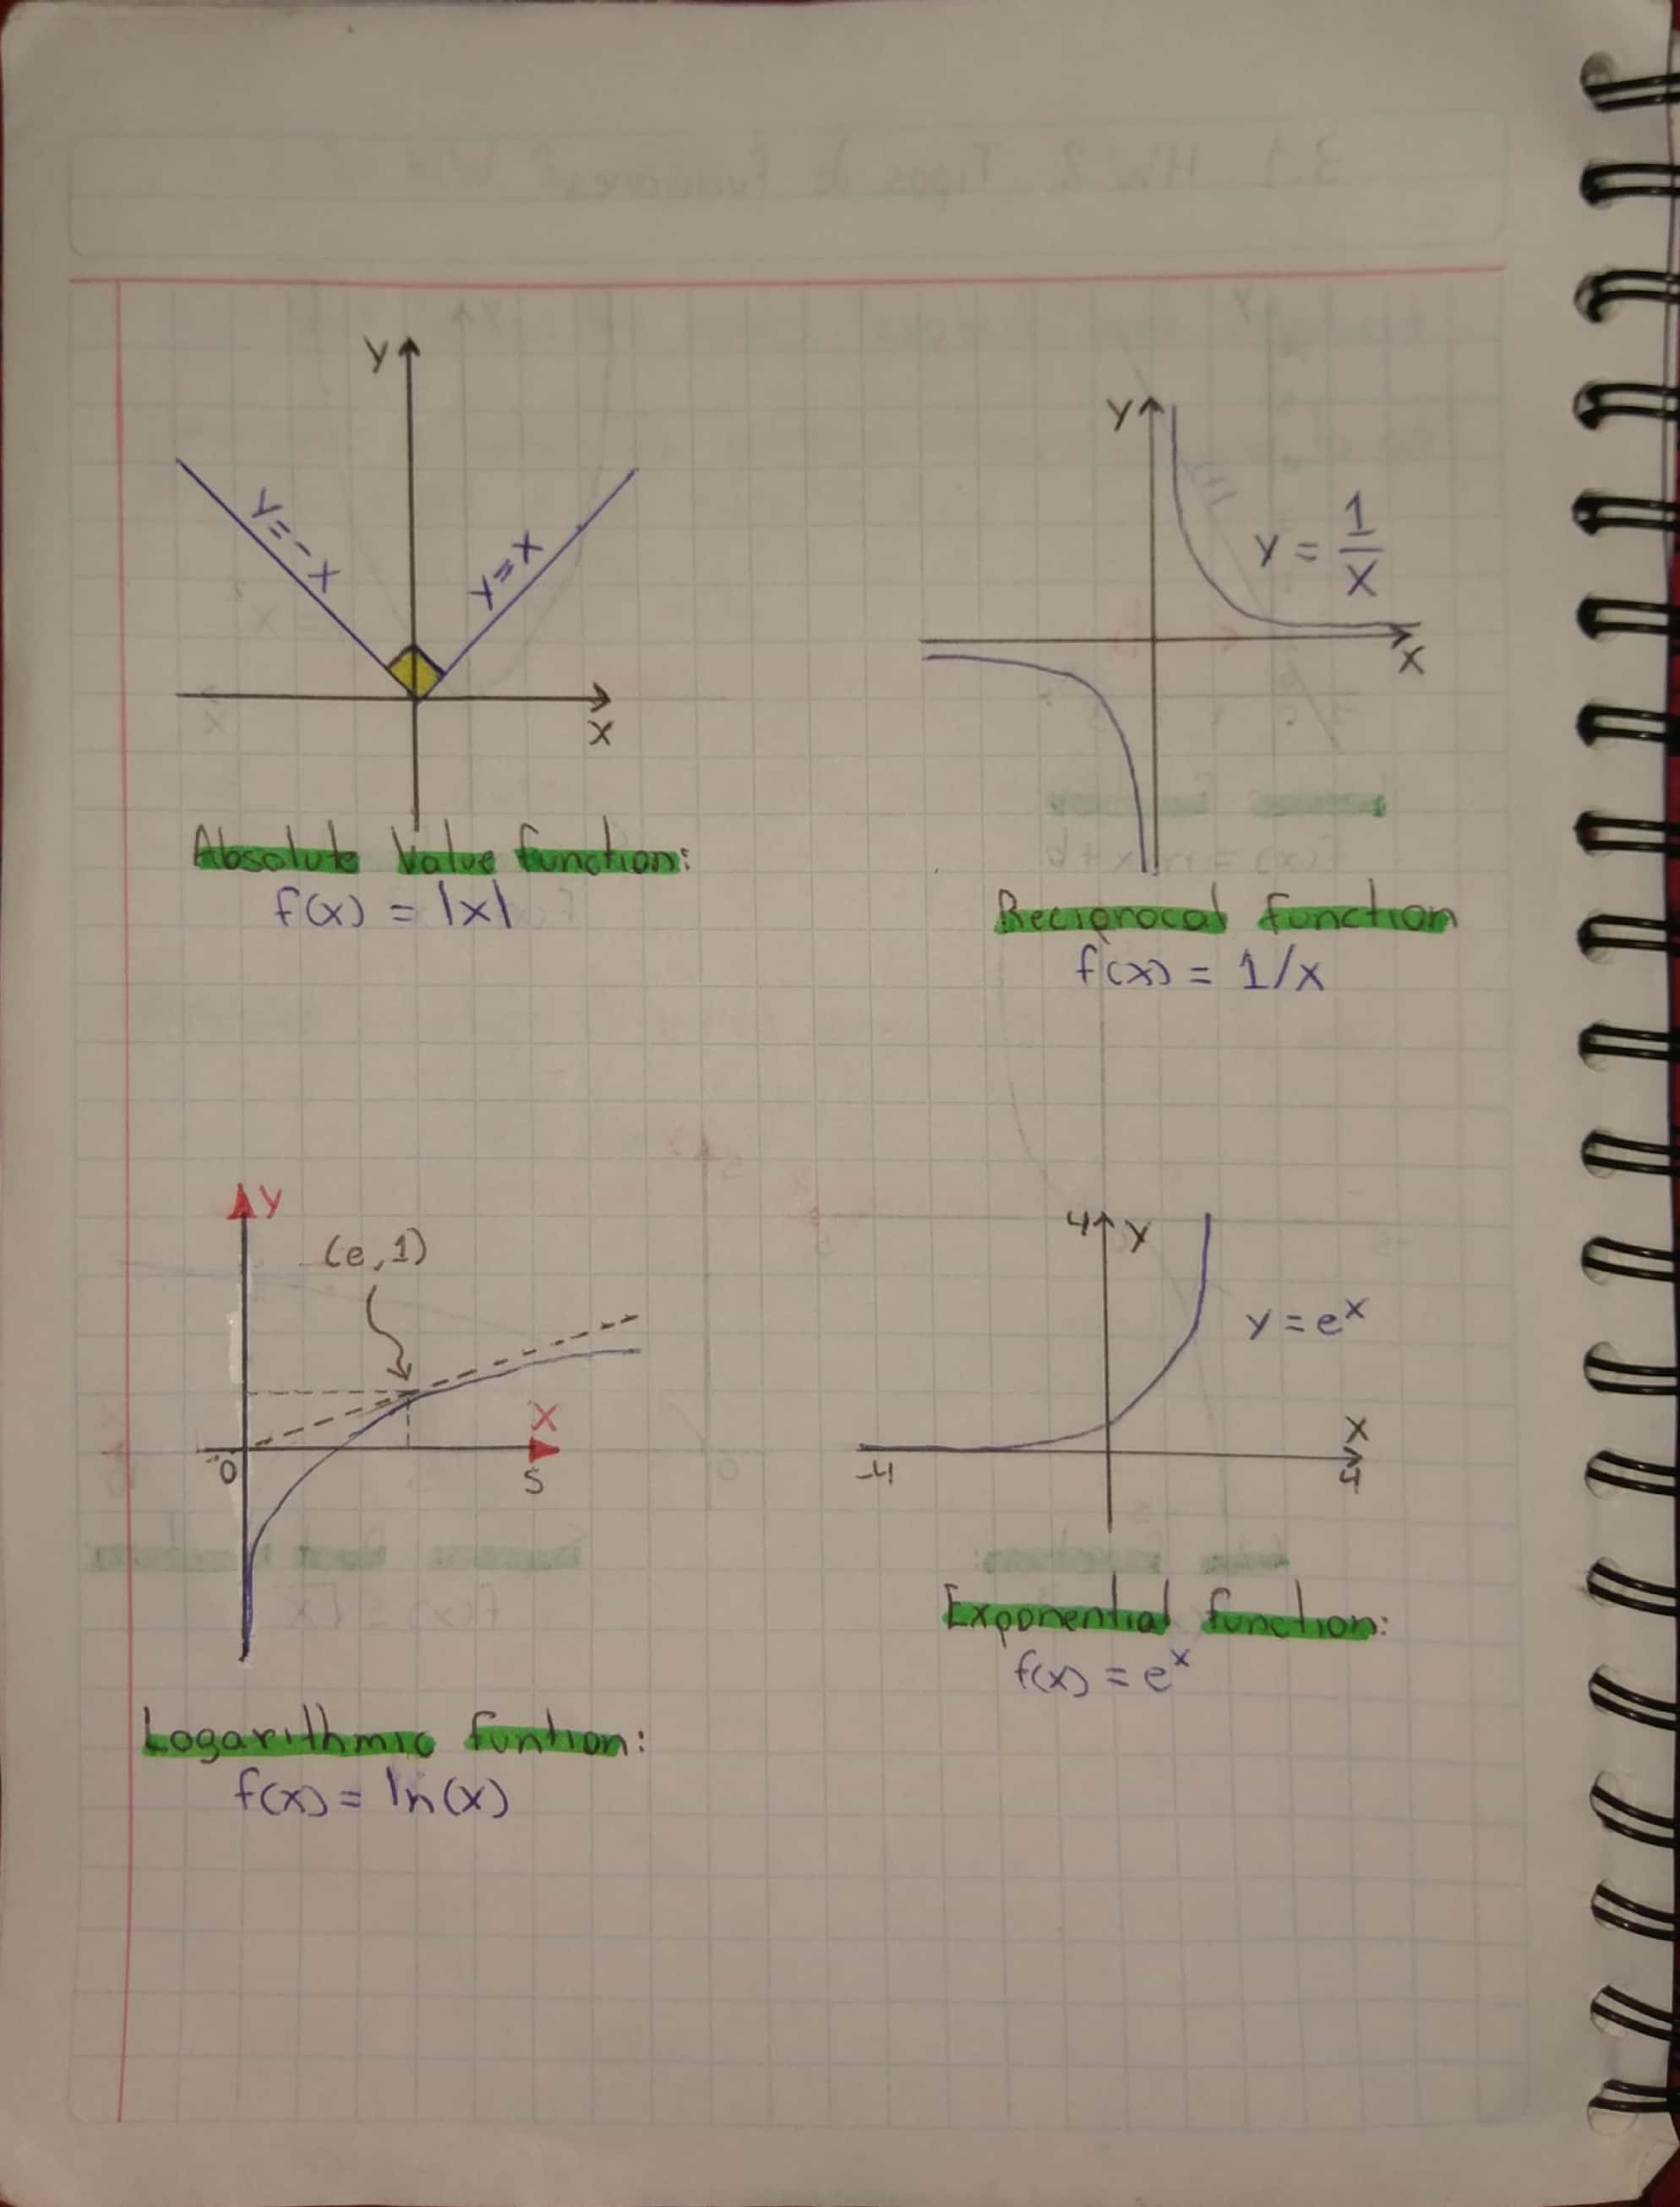 y
y=-x
y=x
x
Absolute Value function:
f(x) = |x|
y
y = 1/x
x
Reciprocal function
f(x) = 1/x
y
(e,1)
x
0
5
Logarithmic funtion:
f(x) = ln(x)
4 y
y = eˣ
x
-4
4
Exponential function:
f(x) = eˣ